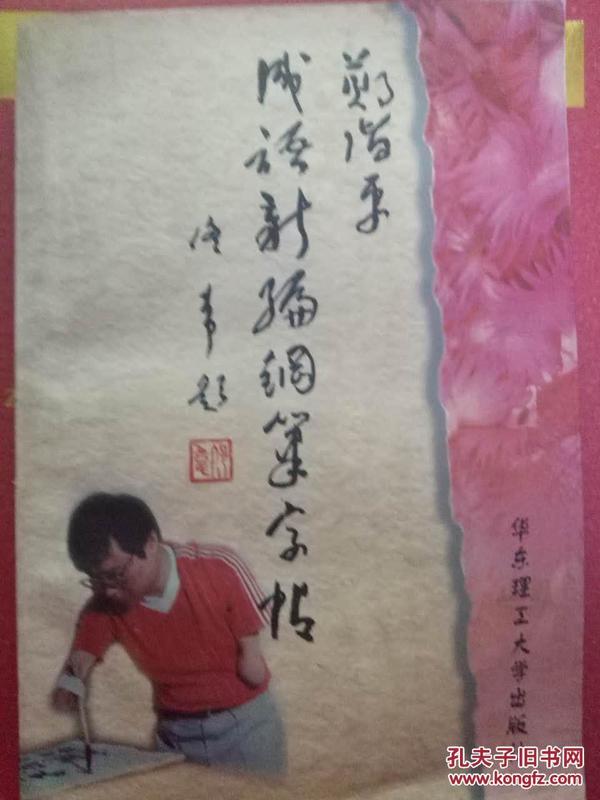 郑皆平
成语新编钢笔字帖
佟韦题
华东理工大学出版
孔夫子旧书网
www.kongfz.com